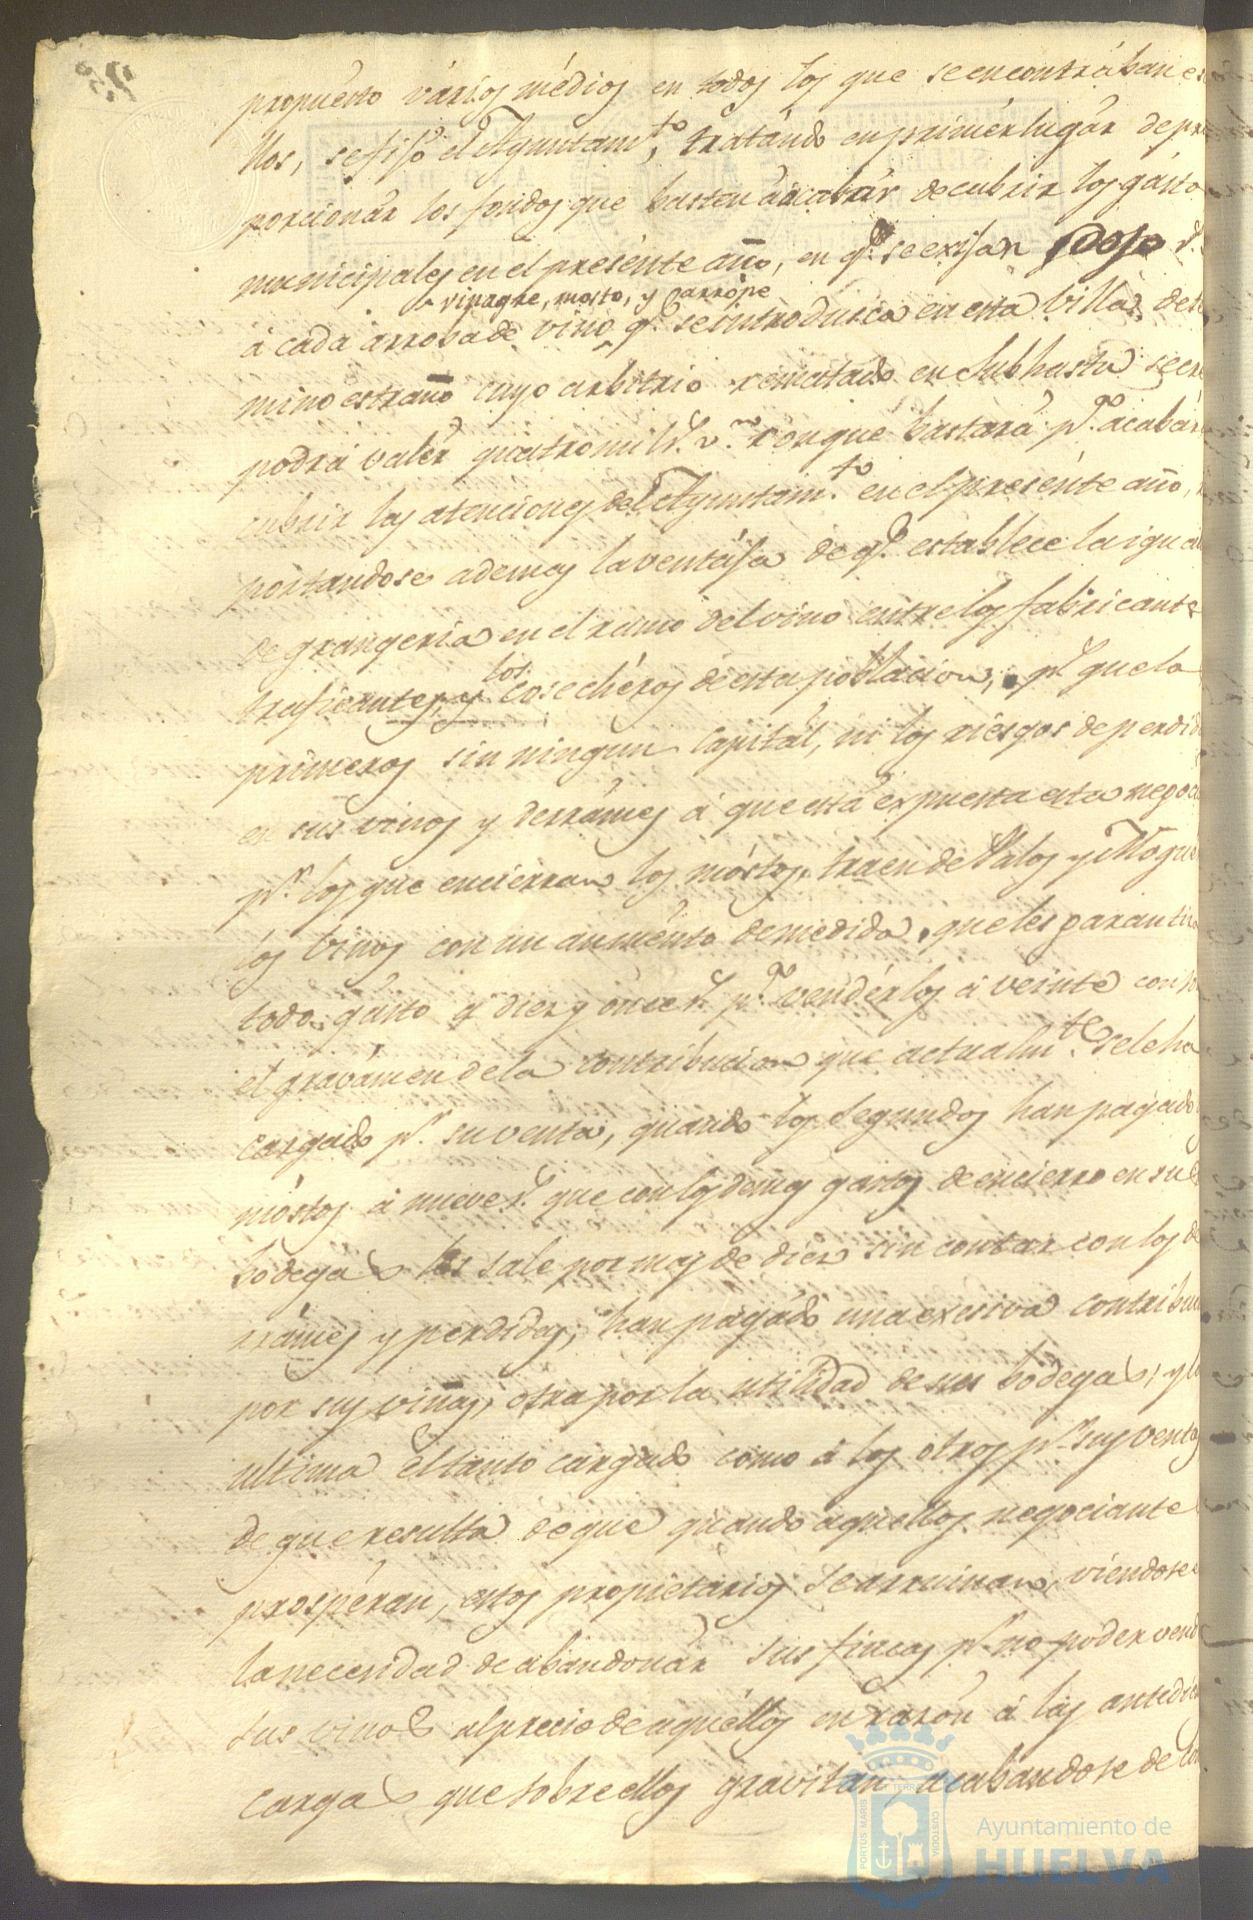 propuesto várioɟ médioɟ en todoɟ loɟ que se encontrában e
llos, se fijó el Ayuntam.to, tratándo en primér lugár de pro
porcionár los fondoɟ que basten á acabár de cubrir loɟ gásto
municipaleɟ en el presénte año, en q.e se exijan dos r.
vinagre, mosto, y arrópe
á cada arroba de vino q.e se introdusca en esta Villa, de tér
mino estraño cuyo arbitrio rematado en Subhasta se cre
podrá valér quatro mil r.s v.n con que bastará p.a acabár
cubrir laɟ atencioneɟ del Ayuntam.to en el presénte año,
portandose ademaɟ la ventája de q.e establece la igual
de grangeria en el ramo del vino entre loɟ fabricante
los
traficanteɟ, y cosechéroɟ de esta poblacion, p.r que lo
primeroɟ sin ningun Capitál, ni loɟ riésgos de perdida
en sus vinoɟ y derrámeɟ á que está expuesta esta negoci
p.a loɟ que enciérran loɟ móstoɟ, traen de Palos y Moguer
loɟ Vinoɟ con un auménto de medida, que les garantiza
todo gásto á diez y once r.s p.a vendérloɟ á veinte con so
el gravámen de la contribucion que actualm.te se le ha
cargado p.r su venta, quando loɟ Segundoɟ han pagado
móstoɟ á nueve r.s que con loɟ demaɟ gastoɟ de encierro en sus
bodegas les sale por maɟ de diez sin contar con loɟ de
rrámeɟ y perdidaɟ, han pagádo una exesiva contribu
por suɟ viñaɟ, otra por la utilidad de sus bodegas, y la
ultima el tanto cargado como á loɟ otroɟ p.r suɟ ventaɟ
de que resulta de que quando aquelloɟ negociante
prospéran, estoɟ propietárioɟ se arruinan, viéndose e
la necesidad de abandonár sus fincaɟ p.r no poder vend
sus vinos al precio de aquélloɟ en razón á laɟ antedic
cargas que sobre elloɟ gravitan, acabandose de
PORTUS MARIS ET TERRAE CUSTODIA
Ayuntamiento de
HUELVA